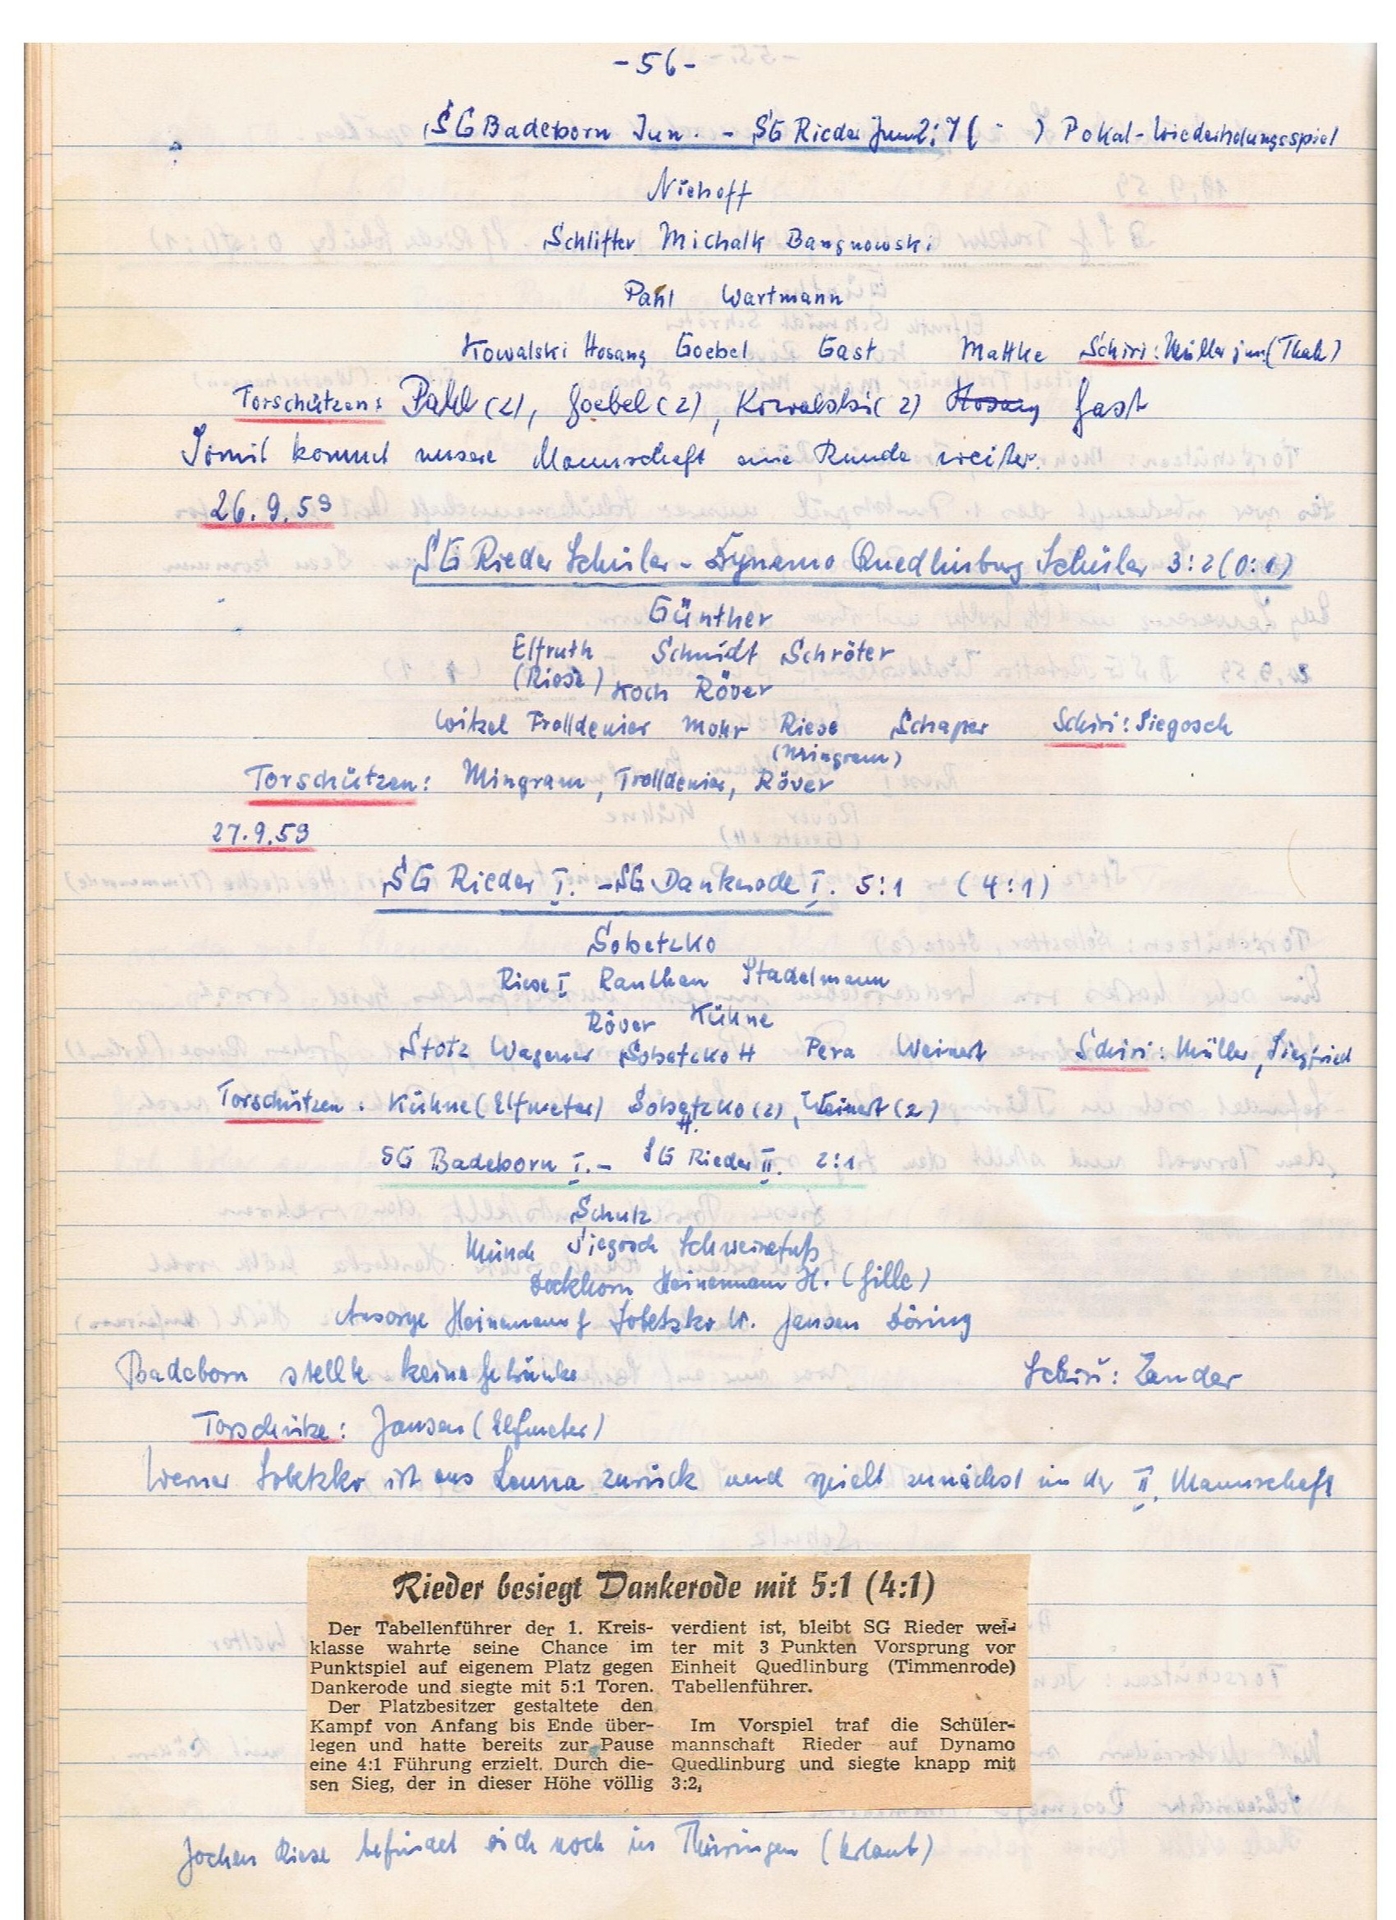 -56-
SG Badeborn Jun. - SG Rieder Jun 2:7 ( - ) Pokal-Wiederholungsspiel
Niehoff
Schlifter Michalk Bangnowski
Pahl Wartmann
Kowalski Hosang Goebel Gast Mattke Schiri: Müller jun. (Thale)
Torschützen: Pahl (2), Goebel (2), Kowalski (2) Hosang Gast
Somit kommt unsere Mannschaft eine Runde weiter.
26.9.59
SG Rieder Schüler - Dynamo Quedlinburg Schüler 3:2 (0:1)
Günther
Elfruth Schmidt Schröter
(Riese) Koch Röver
Witzel Trolldenier Mohr Riese Schaper Schiri: Siegosch
(Mingram)
Torschützen: Mingram, Trolldenier, Röver
27.9.59
SG Rieder I. - SG Dankerode I. 5:1 (4:1)
Sobetzko
Riese I Ranthen Stadelmann
Röver Kühne
Stotz Wagener Sobetzko H Pera Weinert Schiri: Müller, Siegfried
Torschützen: Kühne (Elfmeter) Sobetzko (2), Weinert (2)
H.
SG Badeborn I. - SG Rieder II. 2:1
Schulz
Münch Siegosch Schweinefuß
Dockhorn Heinemann H. (Gille)
Ansorge Heinemann G Sobetzko W. Jansen Döring
Badeborn stellte keine Getränke Schiri: Zander
Torschütze: Jansen (Elfmeter)
Werner Sobetzko ist aus Leuna zurück und spielt zunächst in der II. Mannschaft
Rieder besiegt Dankerode mit 5:1 (4:1)
Der Tabellenführer der 1. Kreis-
klasse wahrte seine Chance im
Punktspiel auf eigenem Platz gegen
Dankerode und siegte mit 5:1 Toren.
Der Platzbesitzer gestaltete den
Kampf von Anfang bis Ende über-
legen und hatte bereits zur Pause
eine 4:1 Führung erzielt. Durch die-
sen Sieg, der in dieser Höhe völlig
verdient ist, bleibt SG Rieder wei-
ter mit 3 Punkten Vorsprung vor
Einheit Quedlinburg (Timmenrode)
Tabellenführer.
Im Vorspiel traf die Schüler-
mannschaft Rieder auf Dynamo
Quedlinburg und siegte knapp mit
3:2.
Jochen Riese befindet sich noch in Thüringen (Urlaub)